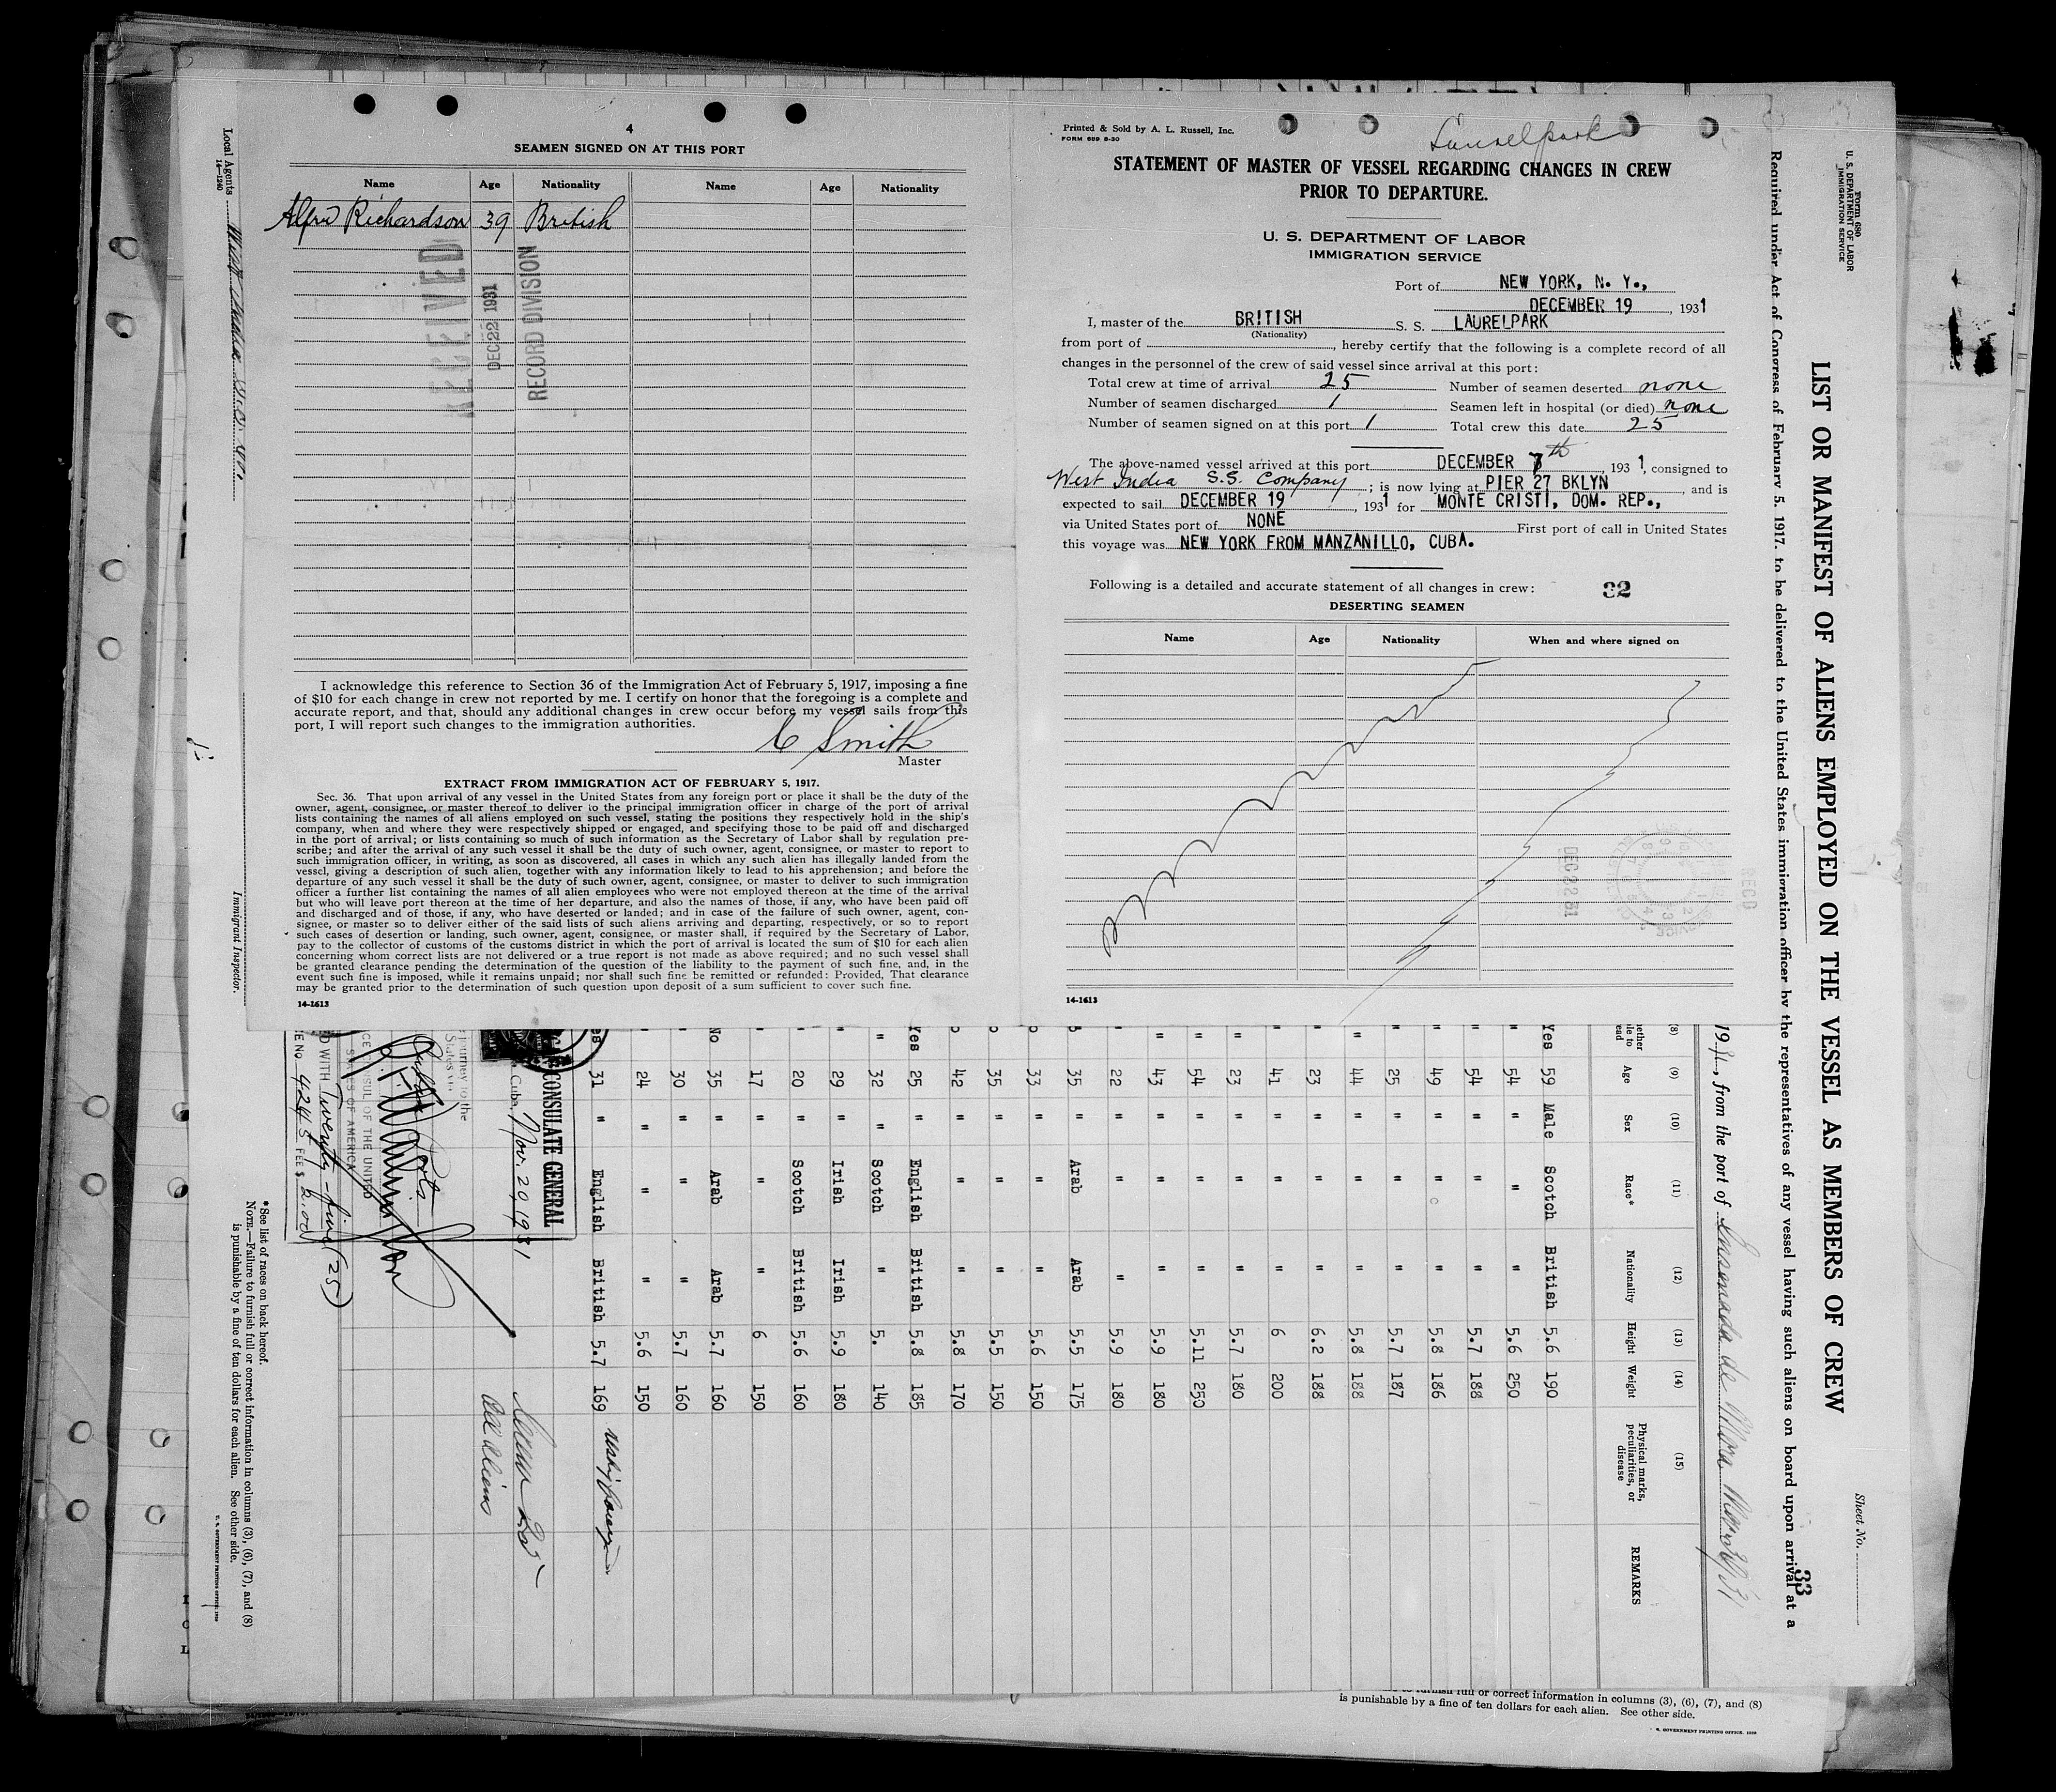 4
SEAMEN SIGNED ON AT THIS PORT
Name Age Nationality Name Age Nationality
Alfred Richardson 39 British
RECEIVED
DEC 22 1931
RECORD DIVISION
I acknowledge this reference to Section 36 of the Immigration Act of February 5, 1917, imposing a fine
of $10 for each change in crew not reported by me. I certify on honor that the foregoing is a complete and
accurate report, and that, should any additional changes in crew occur before my vessel sails from this
port, I will report such changes to the immigration authorities.
C Smith
Master
EXTRACT FROM IMMIGRATION ACT OF FEBRUARY 5, 1917.
Sec. 36. That upon arrival of any vessel in the United States from any foreign port or place it shall be the duty of the
owner, agent, consignee, or master thereof to deliver to the principal immigration officer in charge of the port of arrival
lists containing the names of all aliens employed on such vessel, stating the positions they respectively hold in the ship's
company, when and where they were respectively shipped or engaged, and specifying those to be paid off and discharged
in the port of arrival; or lists containing so much of such information as the Secretary of Labor shall by regulation pre-
scribe; and after the arrival of any such vessel it shall be the duty of such owner, agent, consignee, or master to report to
such immigration officer, in writing, as soon as discovered, all cases in which any such alien has illegally landed from the
vessel, giving a description of such alien, together with any information likely to lead to his apprehension; and before the
departure of any such vessel it shall be the duty of such owner, agent, consignee, or master to deliver to such immigration
officer a further list containing the names of all alien employees who were not employed thereon at the time of the arrival
but who will leave port thereon at the time of her departure, and also the names of those, if any, who have been paid off
and discharged and of those, if any, who have deserted or landed; and in case of the failure of such owner, agent, con-
signee, or master so to deliver either of the said lists of such aliens arriving and departing, respectively, or so to report
such cases of desertion or landing, such owner, agent, consignee, or master shall, if required by the Secretary of Labor,
pay to the collector of customs of the customs district in which the port of arrival is located the sum of $10 for each alien
concerning whom correct lists are not delivered or a true report is not made as above required; and no such vessel shall
be granted clearance pending the determination of the question of the liability to the payment of such fine, and, in the
event such fine is imposed, while it remains unpaid; nor shall such fine be remitted or refunded: Provided, That clearance
may be granted prior to the determination of such question upon deposit of a sum sufficient to cover such fine.
14-1613
Printed & Sold by A. L. Russell, Inc.
FORM 689 8-30
Laurelpark
STATEMENT OF MASTER OF VESSEL REGARDING CHANGES IN CREW
PRIOR TO DEPARTURE.
U. S. DEPARTMENT OF LABOR
IMMIGRATION SERVICE
Port of NEW YORK, N. Y.,
DECEMBER 19, 1931
I, master of the BRITISH S. S. LAURELPARK
(Nationality)
from port of , hereby certify that the following is a complete record of all
changes in the personnel of the crew of said vessel since arrival at this port:
Total crew at time of arrival 25 Number of seamen deserted none
Number of seamen discharged 1 Seamen left in hospital (or died) none
Number of seamen signed on at this port 1 Total crew this date 25
The above-named vessel arrived at this port DECEMBER 7th, 1931, consigned to
West India S.S. Company ; is now lying at PIER 27 BKLYN , and is
expected to sail DECEMBER 19, 1931 for MONTE CRISTI, DOM. REP.,
via United States port of NONE First port of call in United States
this voyage was NEW YORK FROM MANZANILLO, CUBA.
Following is a detailed and accurate statement of all changes in crew: 32
DESERTING SEAMEN
Name Age Nationality When and where signed on
REC'D
DEC 22 31
14-1613
Form 680
U. S. DEPARTMENT OF LABOR
IMMIGRATION SERVICE
Sheet No.
33
LIST OR MANIFEST OF ALIENS EMPLOYED ON THE VESSEL AS MEMBERS OF CREW
Required under Act of Congress of February 5, 1917, to be delivered to the United States immigration officer by the representatives of any vessel having such aliens on board upon arrival at a
1931, from the port of Ensenada de Mora
(8) (9) (10) (11) (12) (13) (14) (15)
Age Sex Race* Nationality Height Weight Physical marks, peculiarities, or disease REMARKS
Yes 59 Male Scotch British 5.6 190
54 " " " 5.6 250
54 " " " 5.7 188
" 49 " " " 5.8 186
" 25 " " " 5.7 187
" 44 " " " 5.8 188
" 23 " " " 6.2 188
" 41 " " " 6 200
" 23 " " " 5.7 180
" 54 " " " 5.11 250
" 43 " " " 5.9 180
" 22 " " " 5.9 180
35 " Arab Arab 5.5 175
33 " " " 5.6 150
35 " " " 5.5 150
42 " " " 5.8 170
Yes 25 " English British 5.8 185
" 32 " Scotch " 5. 140
" 29 " Irish Irish 5.9 180
" 20 " Scotch British 5.6 160
" 17 " " " 6 150
No 35 " Arab Arab 5.7 160
" 30 " " " 5.7 160
" 24 " " " 5.6 150
31 " English British 5.7 169
CONSULATE GENERAL
Cuba, Nov. 20, 1931
journey to the
States via
OF THE UNITED
STATES OF AMERICA
WITH Twenty-five (25)
No. 4245 FEE $ 2.00
All aliens
*See list of races on back hereof.
NOTE.—Failure to furnish full or correct information in columns (3), (6), (7), and (8)
is punishable by a fine of ten dollars for each alien. See other side.
U. S. GOVERNMENT PRINTING OFFICE
Local Agents West India S.S. Co.
14-1240
Immigrant Inspector.
to furnish full or correct information in columns (3), (6), (7), and (8)
is punishable by a fine of ten dollars for each alien. See other side.
U. S. GOVERNMENT PRINTING OFFICE